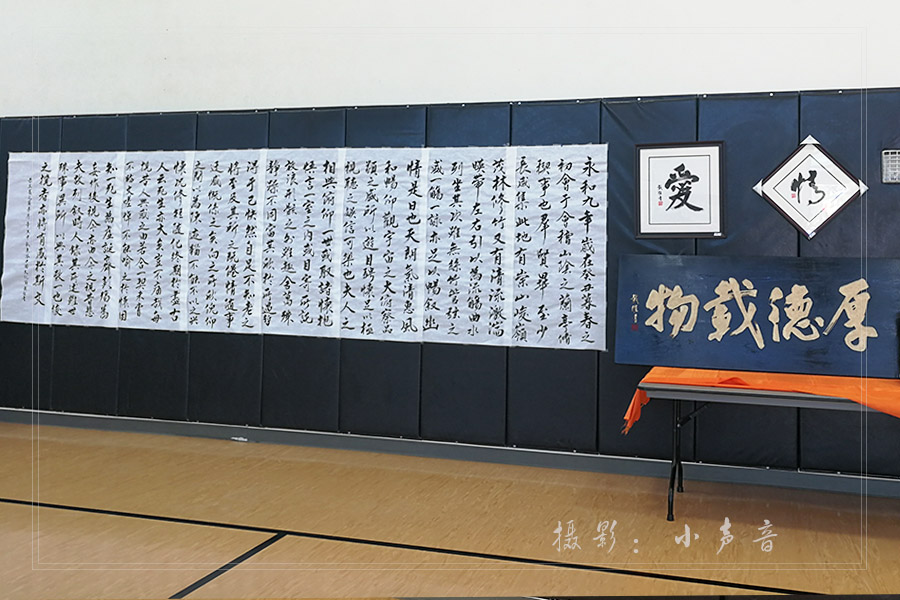 永和九年歲在癸丑暮春之
初會于會稽山陰之蘭亭脩
禊事也羣賢畢至少
長咸集此地有崇山峻嶺
茂林修竹又有清流激湍
暎帶左右引以為流觴曲水
列坐其次雖無絲竹管弦之
盛一觴一詠亦足以暢敘幽
情是日也天朗氣清惠風
和暢仰觀宇宙之大俯察品
類之盛所以遊目騁懷足極
視聽之娛信可樂也夫人之
相與俯仰一世或取諸懷抱
悟言一室之內或因寄所託
放浪形骸之外雖趣舍萬殊
靜躁不同當其欣於所遇暫
得於己快然自足不知老之
將至及其所之既惓情隨事
遷感慨係之矣向之所欣俛仰
之閒以為陳迹猶不能不以之興
懷況修短隨化終期於盡古
人云死生亦大矣豈不痛哉每
覽昔人興感之由若合一契未嘗
不臨文嗟悼不能喻之於懷固
知一死生為虛誕齊彭殤為
妄作後之視今亦由今之視昔悲
夫故列敘時人錄其所述雖世
殊事異所以興懷其致一也後
之覽者亦將有感於斯文
愛
情
厚德載物
摄影：小声音